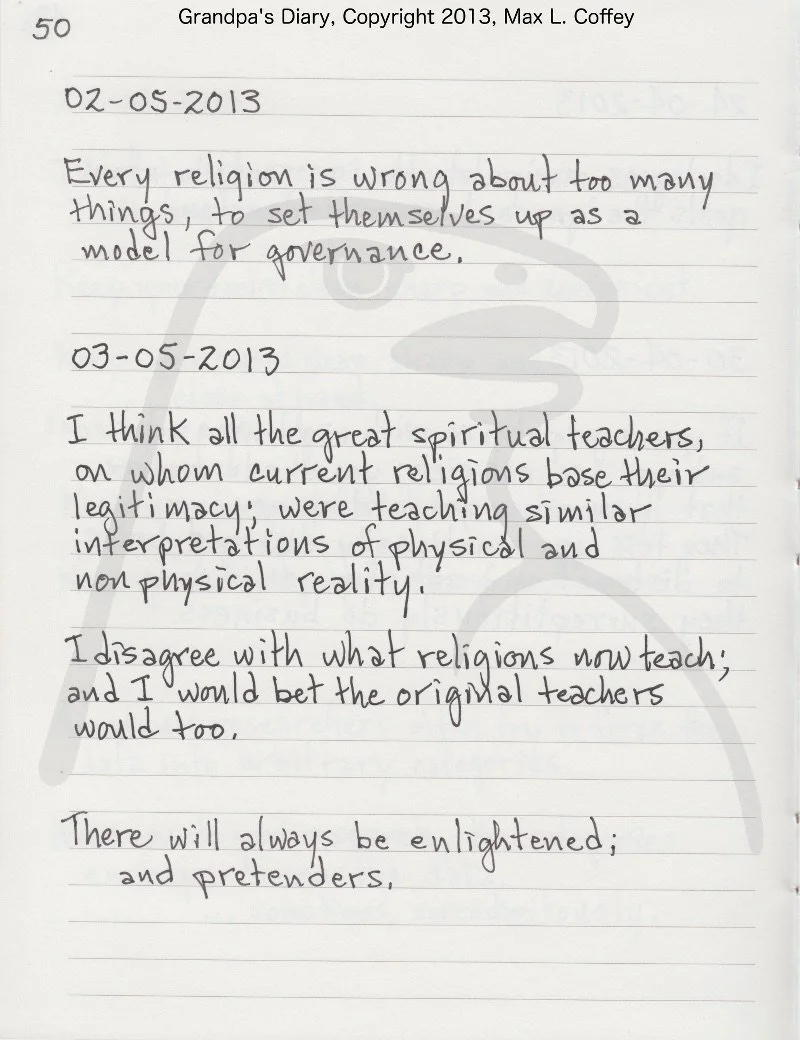 Grandpa's Diary, Copyright 2013, Max L. Coffey
50
02-05-2013
Every religion is wrong about too many
things, to set themselves up as a
model for governance.
03-05-2013
I think all the great spiritual teachers,
on whom current religions base their
legitimacy; were teaching similar
interpretations of physical and
non physical reality.
I disagree with what religions now teach;
and I would bet the original teachers
would too.
There will always be enlightened;
and pretenders.